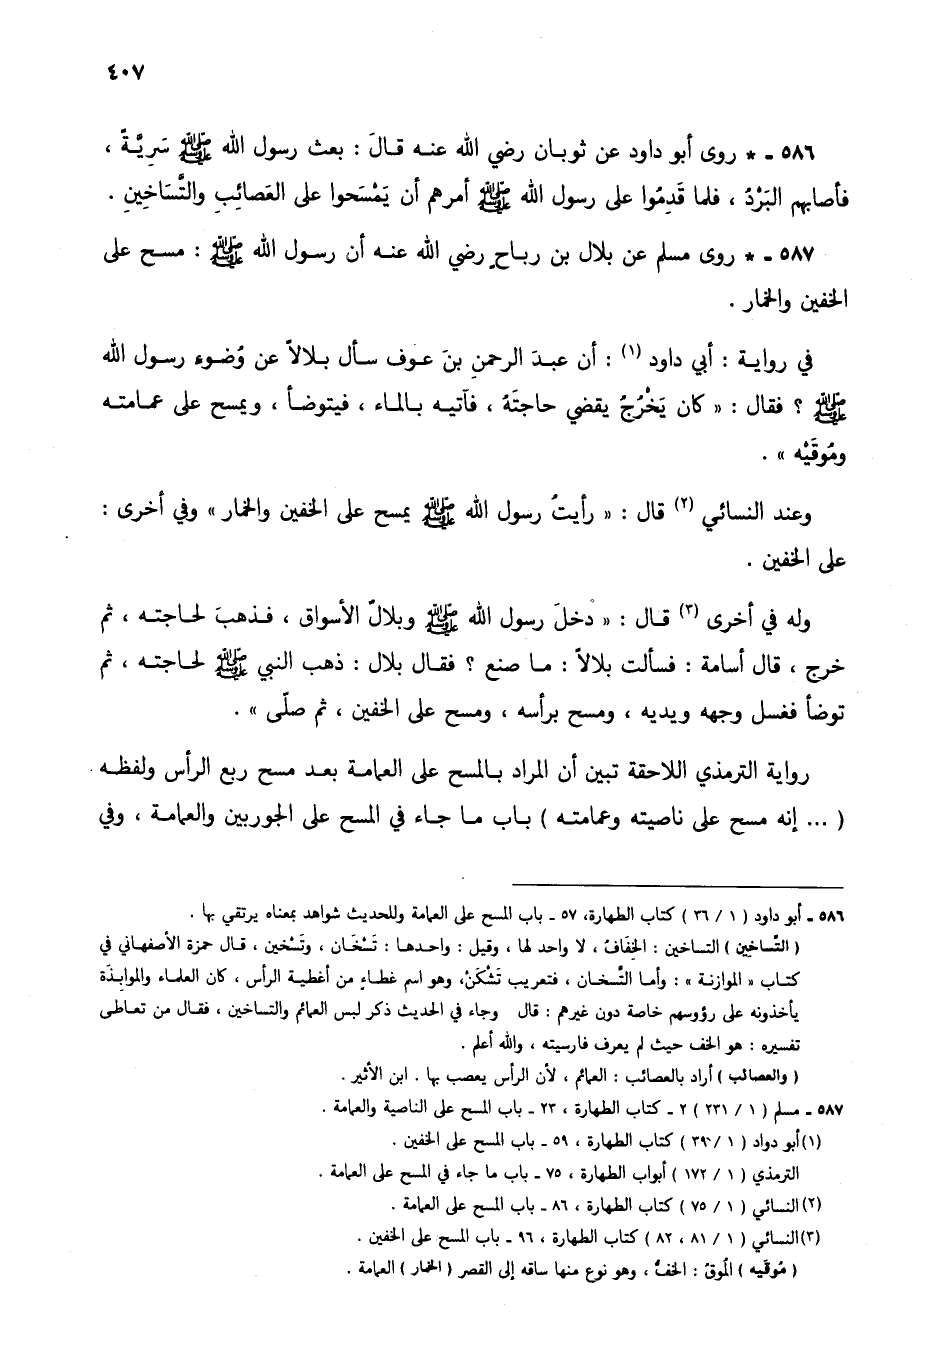 ٤٠٧
٥٨٦ ـ * روى أبو داود عن ثوبان رضي الله عنه قالَ : بعث رسول الله ﷺ سَرِيَّةً ،
فأصابهم البَرْدُ ، فلما قَدِمُوا على رسول الله ﷺ أمرهم أن يَمْسَحوا على العَصائِبِ والتَّسَاخِينِ .
٥٨٧ ـ * روى مسلم عن بلال بن رباحٍ رضي الله عنه أن رسول الله ﷺ : مسح على
الخفين والخمار .
في رواية : أبي داود (١) : أن عبدَ الرحمنِ بنَ عوف سأل بلالاً عن وُضوء رسول الله
ﷺ ؟ فقال : « كان يَخْرُجُ يقضي حاجتَهُ ، فآتيه بالماء ، فيتوضأ ، ويمسح على عمامته
ومُوقَيْه » .
وعند النسائي (٢) قال : « رأيتُ رسول الله ﷺ يمسح على الخفين والخمار » وفي أخرى :
على الخفين .
وله في أخرى (٣) قال : « دخلَ رسول الله ﷺ وبلالٌ الأسواق ، فذهبَ لحاجته ، ثم
خرج ، قال أسامة : فسألت بلالاً : ما صنع ؟ فقال بلال : ذهب النبي ﷺ لحاجته ، ثم
توضأ فغسل وجهه ويديه ، ومسح برأسه ، ومسح على الخفين ، ثم صلّى » .
رواية الترمذي اللاحقة تبين أن المراد بالمسح على العمامة بعد مسح ربع الرأس ولفظه
( ... إنه مسح على ناصيته وعمامته ) باب ما جاء في المسح على الجوربين والعمامة ، وفي
٥٨٦ ـ أبو داود ( ١ / ٣٦ ) كتاب الطهارة، ٥٧ ـ باب المسح على العمامة وللحديث شواهد بمعناه يرتقي بها .
( التَّساخين ) التساخين : الخِفَافُ ، لا واحد لها ، وقيل : واحدها : تَسْخَان ، وتَسْخين ، قال حمزة الأصفهاني في
كتاب « الموازنة » : وأما التَّسْخان ، فتعريب تَشْكَنْ، وهو اسم غطاءٍ من أغطية الرأس ، كان العلماء والموابذة
يأخذونه على رؤوسهم خاصة دون غيرهم : قال وجاء في الحديث ذكر لبس العمائم والتساخين ، فقال من تعاطى
تفسيره : هو الخف حيث لم يعرف فارسيته ، والله أعلم .
( والعصائب ) أراد بالعصائب : العمائم ، لأن الرأس يعصب بها . ابن الأثير .
٥٨٧ ـ مسلم ( ١ / ٢٣١ ) ٢ ـ كتاب الطهارة ، ٢٣ ـ باب المسح على الناصية والعمامة .
(١) أبو دواد ( ١ / ٣٩ ) كتاب الطهارة ، ٥٩ ـ باب المسح على الخفين .
الترمذي ( ١ / ١٧٢ ) أبواب الطهارة ، ٧٥ ـ باب ما جاء في المسح على العمامة .
(٢) النسائي ( ١ / ٧٥ ) كتاب الطهارة ، ٨٦ ـ باب المسح على العمامة .
(٣) النسائي ( ١ / ٨١ ، ٨٢ ) كتاب الطهارة ، ٩٦ ـ باب المسح على الخفين .
( مُوقَيه ) المُوق : الخفُّ ، وهو نوع منها ساقه إلى القصر ( الخمار ) العمامة .